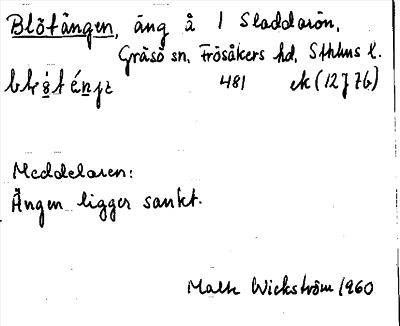 Blötängen, äng å 1 Sladdarön,
Gräsö sn, Frösåkers hd, Sthlms l.
481 ek (12J7b)
Meddelaren:
Ängen ligger sankt.
Wickström 1960